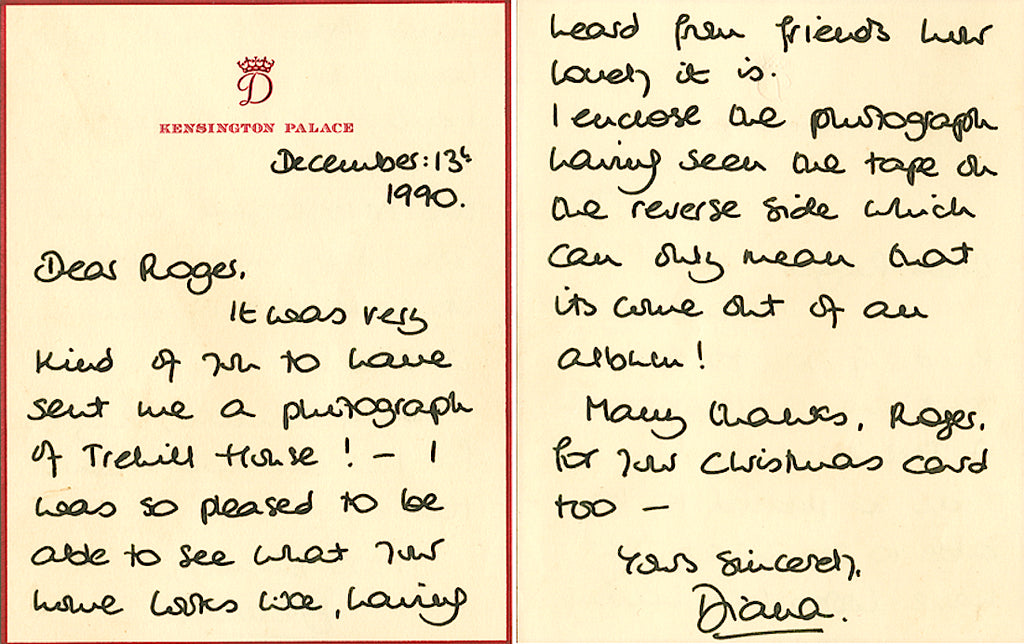 D
KENSINGTON PALACE
December: 13th
1990.
Dear Roger,
It was very
kind of you to have
sent me a photograph
of Trehill House! – I
was so pleased to be
able to see what your
home looks like, having
heard from friends how
lovely it is.
I enclose the photograph
having seen the tape on
the reverse side which
can only mean that
its come out of an
album!
Many thanks, Roger,
for your Christmas card
too –
Yours sincerely,
Diana.